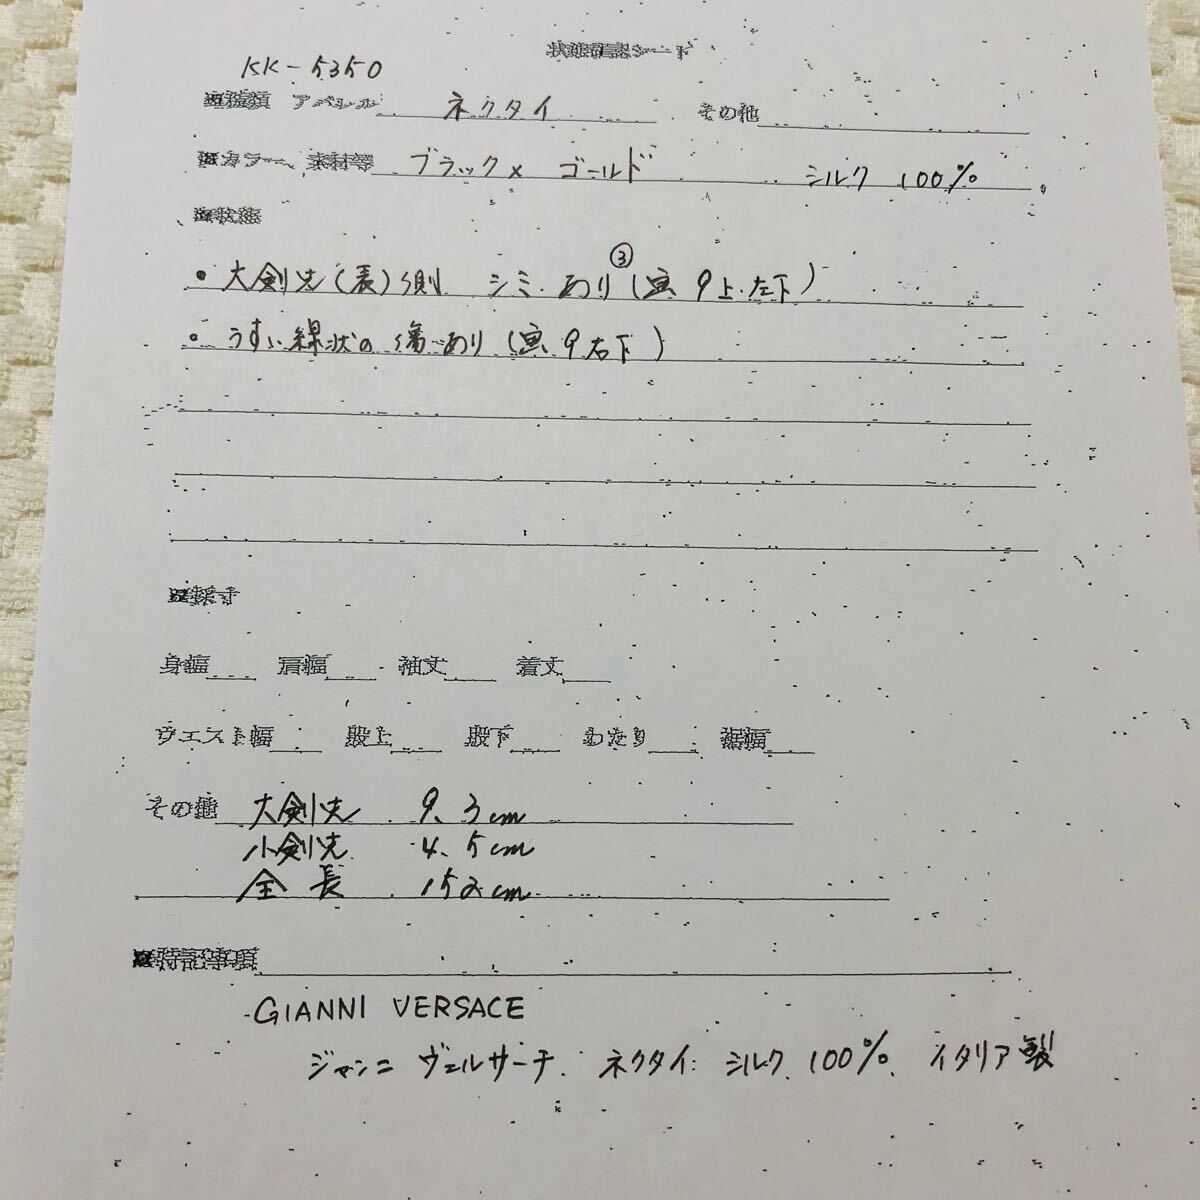 状態確認シート
KK-5350
■種類 アパレル ネクタイ その他
■カラー、素材等 ブラック× ゴールド シルク 100%
■状態
• 大剣先(表)側 シミあり③(画 9上・左下)
• うすい線状の傷あり(画 9右下)
■採寸
身幅 肩幅 袖丈 着丈
ウエスト幅 股上 股下 わたり 裾幅
その他 大剣先 9.3cm
小剣先 4.5cm
全長 152cm
■特記事項
GIANNI VERSACE
ジャンニ ヴェルサーチ ネクタイ シルク 100% イタリア製